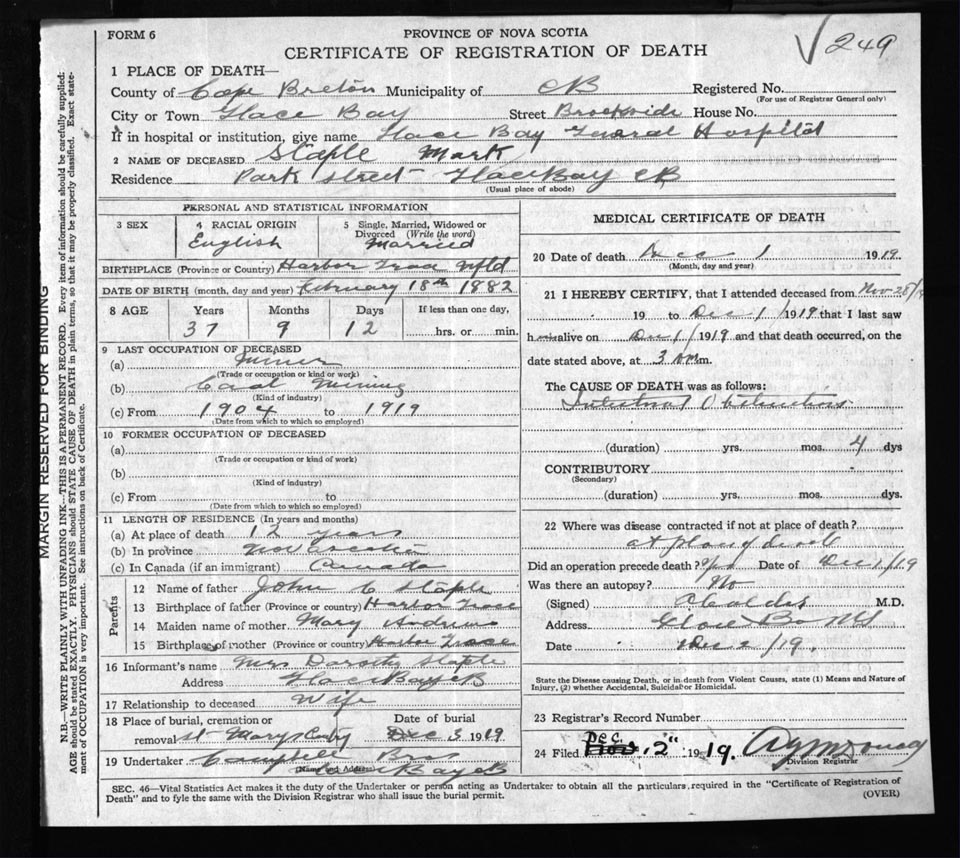 FORM 6
PROVINCE OF NOVA SCOTIA
CERTIFICATE OF REGISTRATION OF DEATH
√ 249
1 PLACE OF DEATH—
County of Cape Breton Municipality of CB Registered No.
(For use of Registrar General only)
City or Town Glace Bay Street Brookside House No.
If in hospital or institution, give name Glace Bay General Hospital
2 NAME OF DECEASED Staple Mark
Residence Park Street Glace Bay CB
(Usual place of abode)
PERSONAL AND STATISTICAL INFORMATION
3 SEX 4 RACIAL ORIGIN 5 Single, Married, Widowed or Divorced (Write the word)
English Married
BIRTHPLACE (Province or Country) Harbor Grace Nfld
DATE OF BIRTH (month, day and year) February 18th 1882
8 AGE Years Months Days If less than one day,
37 9 12 hrs. or min.
9 LAST OCCUPATION OF DECEASED
(a) Miner
(Trade or occupation or kind or work)
(b) Coal Mining
(Kind of industry)
(c) From 1904 to 1919
(Date from which to which so employed)
10 FORMER OCCUPATION OF DECEASED
(a)
(Trade or occupation or kind of work)
(b)
(Kind of industry)
(c) From to
(Date from which to which so employed)
11 LENGTH OF RESIDENCE (In years and months)
(a) At place of death 12 years
(b) In province Nova Scotia
(c) In Canada (if an immigrant) Canada
Parents
12 Name of father John C Staple
13 Birthplace of father (Province or country) Harbor Grace
14 Maiden name of mother Mary Andrews
15 Birthplace of mother (Province or country) Harbor Grace
16 Informant's name Mrs Dorothy Staple
Address Glace Bay CB
17 Relationship to deceased Wife
18 Place of burial, cremation or Date of burial
removal St Marys Cemy Dec 3 1919
19 Undertaker Campbell Bros
(Name and Address) Glace Bay CB
MEDICAL CERTIFICATE OF DEATH
20 Date of death Dec 1 1919.
(Month, day and year)
21 I HEREBY CERTIFY, that I attended deceased from Nov 28/19
19 to Dec 1/1919 that I last saw
h alive on Dec 1/1919 and that death occurred, on the
date stated above, at 3 m.
The CAUSE OF DEATH was as follows:
Intestinal Obstruction
(duration) yrs. mos. 4 dys
CONTRIBUTORY
(Secondary)
(duration) yrs. mos. dys.
22 Where was disease contracted if not at place of death?
at place of death
Did an operation precede death? yes Date of Dec 1/19
Was there an autopsy? No
(Signed) M.D.
Address Glace Bay NS
Date Dec 2/19.
State the Disease causing Death, or in death from Violent Causes, state (1) Means and Nature of
Injury, (2) whether Accidental, Suicidal or Homicidal.
23 Registrar's Record Number
Dec.
24 Filed Nov. "2" 1919.
Division Registrar
SEC. 46—Vital Statistics Act makes it the duty of the Undertaker or person acting as Undertaker to obtain all the particulars required in the "Certificate of Registration of
Death" and to fyle the same with the Division Registrar who shall issue the burial permit. (OVER)
MARGIN RESERVED FOR BINDING
N.B.—WRITE PLAINLY WITH UNFADING INK—THIS IS A PERMANENT RECORD. Every item of information should be carefully supplied:
AGE should be stated EXACTLY. PHYSICIANS should STATE CAUSE OF DEATH in plain terms, so that it may be properly classified. Exact state-
ment of OCCUPATION is very important. See instructions on back of Certificate.